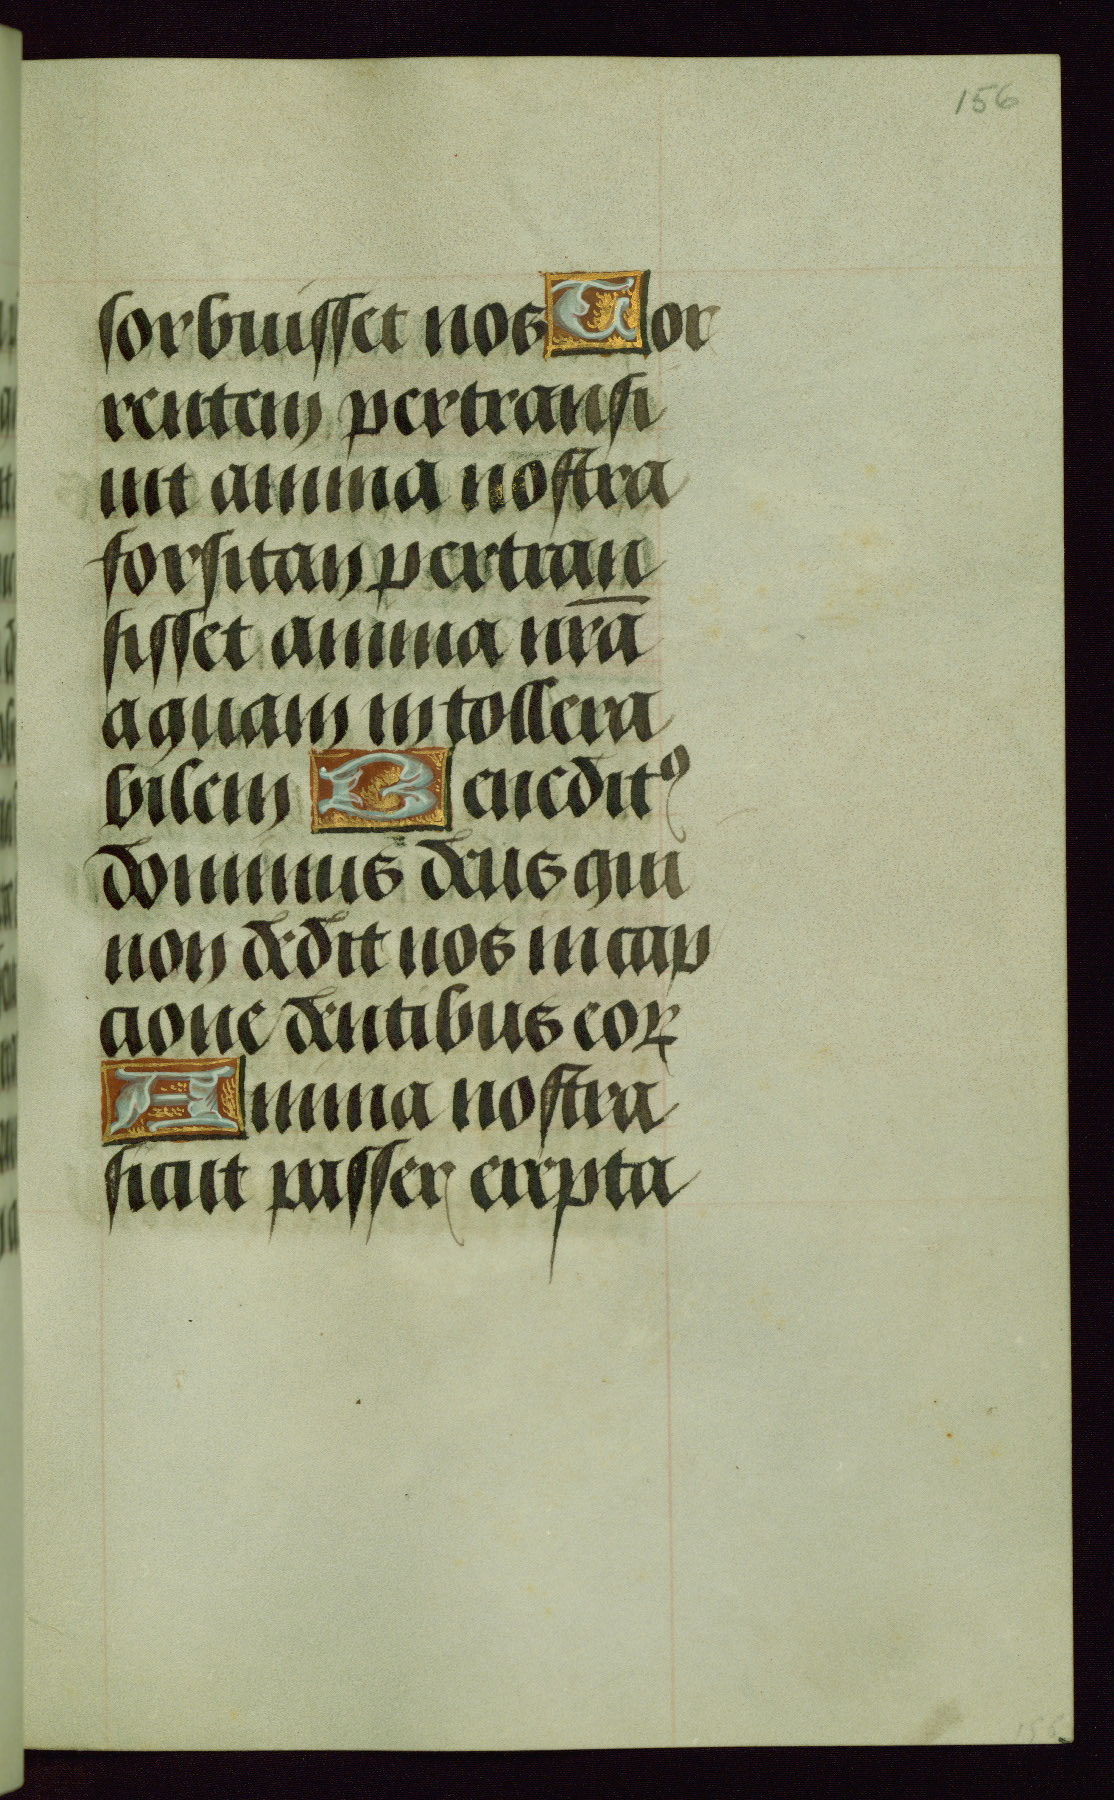 156
sorbuisset nos Tor
rentem pertransi
uit anima nostra
forsitan pertran
sisset anima nr̄a
aquam intollera
bilem Benedītꝰ
dominus deus qui
non dedit nos in cap
cione dentibus eoꝝ
Anima nostra
sicut passer erepta